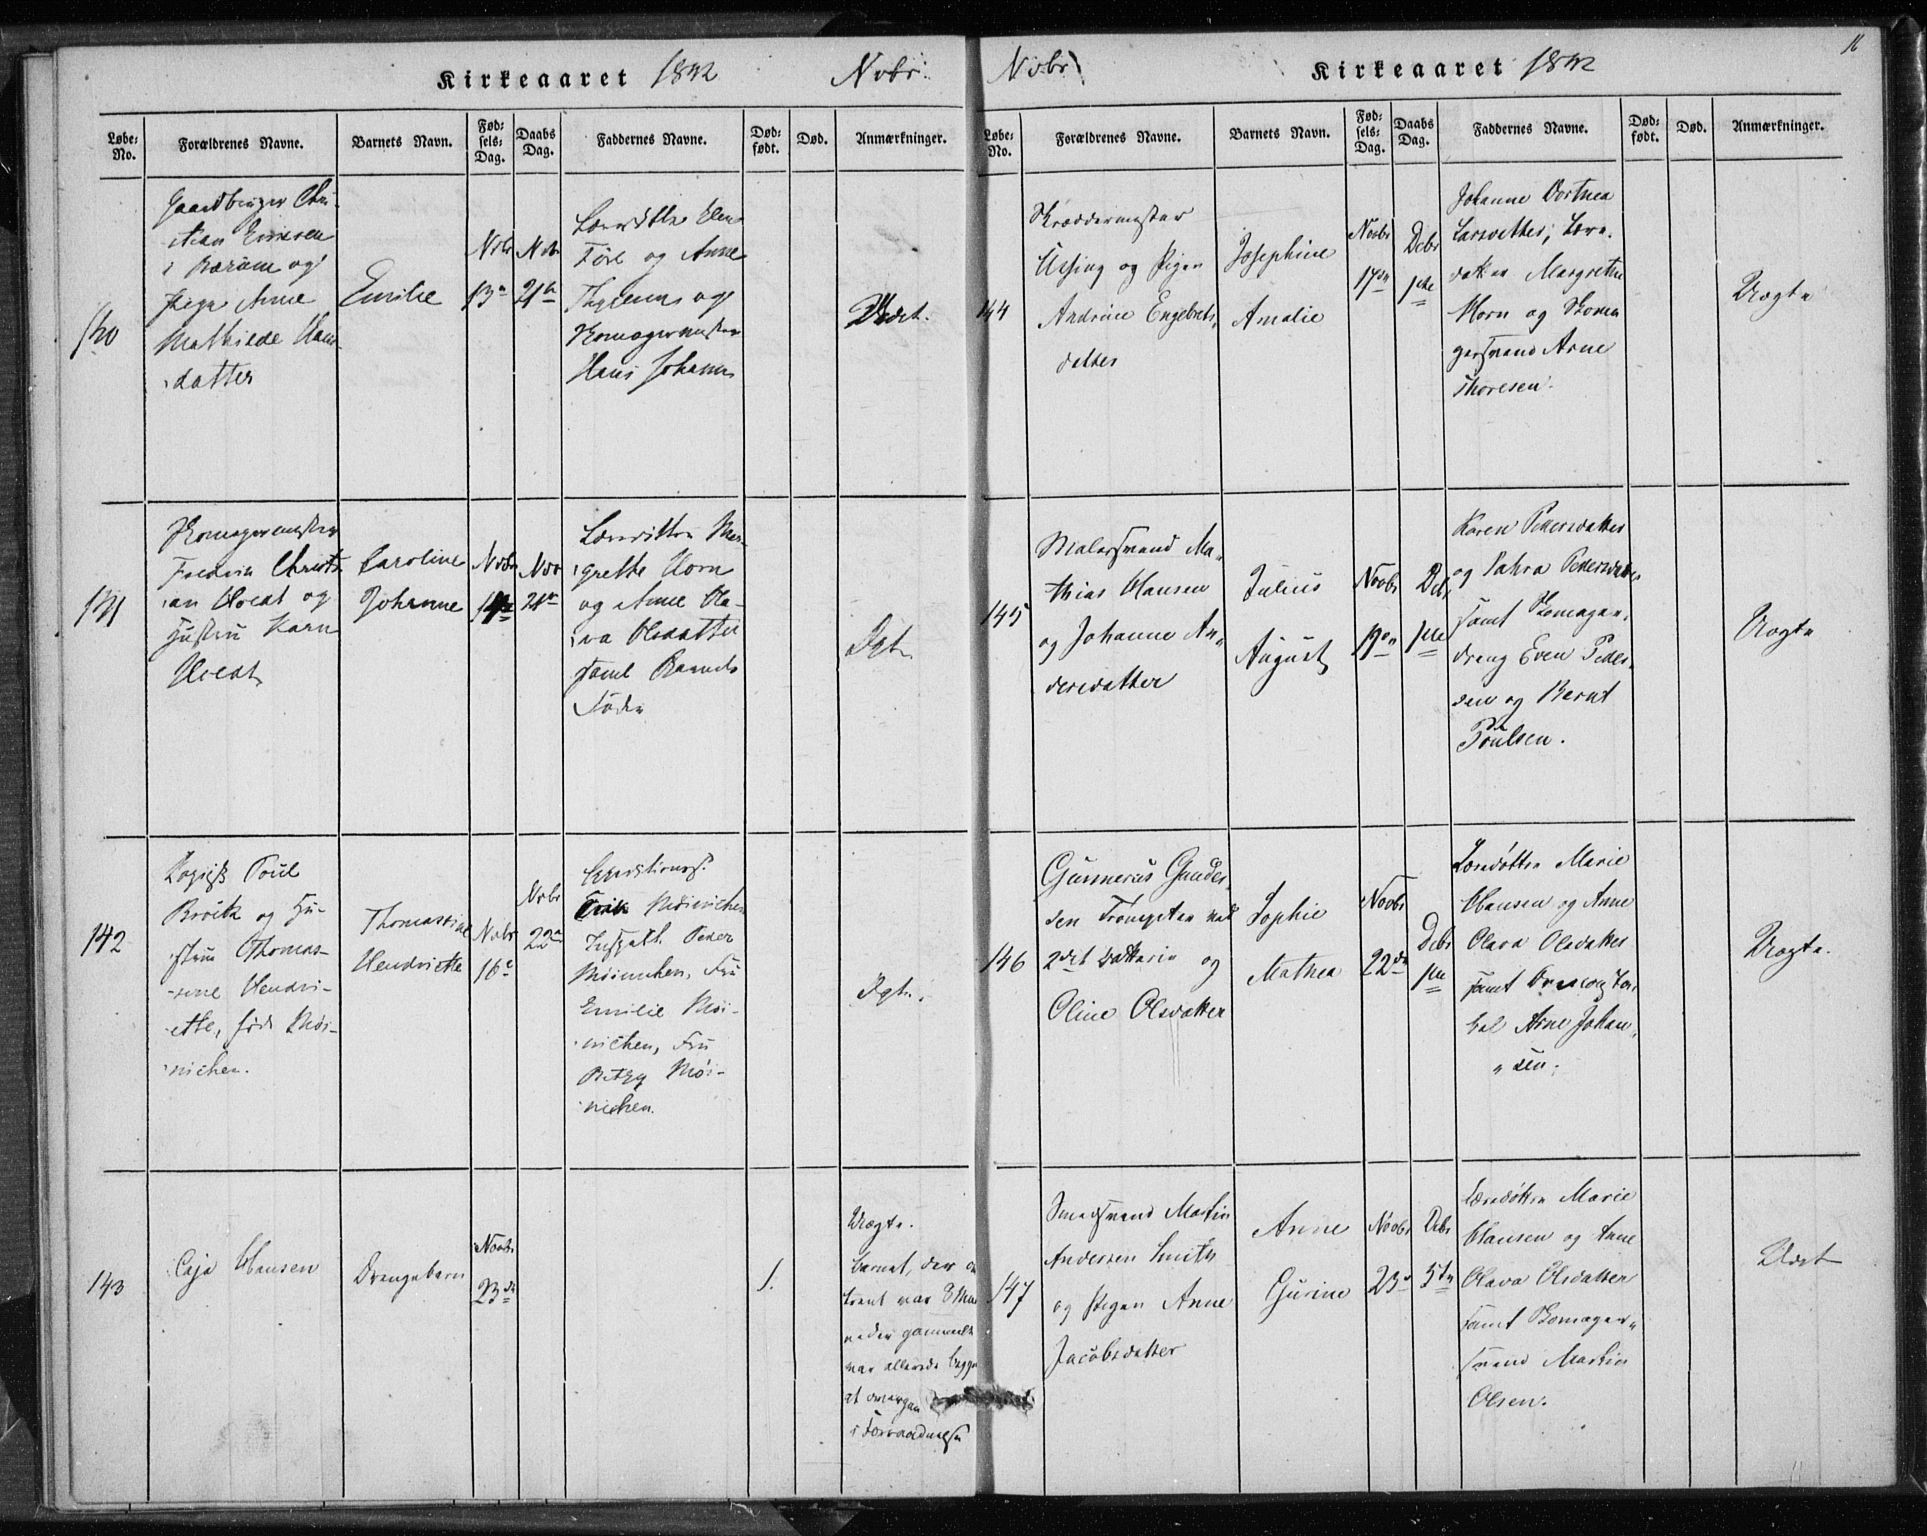 Kirkeaaret 1842 Novbr.
Løbe-No. Forældrenes Navne. Barnets Navn. Fødselsdag. Daabs Dag. Faddernes Navne. Dødfødt. Død. Anmærkninger.
140
Gaardbruger Chri-
stian Evensen
i Bærum og
Pige Anne
Mathilde Hans
datter
Emilie
Novbr
13de
Novbr
21de
Anne
og
Skomagermester
Hans Johann
Uægt.
141
Skomagermester
Frederik Christi-
an
og
Hustru Karn
Caroline
Johanne
Novbr
14de
Nov
21de
Mar-
grethe Horn
og Anne Ola-
va Olsdatter
samt Barnets
Fader
Ægt.
142
Poul
og Hu-
stru Thomas-
sine Hendri-
ette, født Møi-
nichen.
Thomassine
Hendriette
Novbr
16de
Novbr
22de
Møinichen
Peder
Møinichen, Fru
Emilie Møi-
nichen, Fru
Betzy Møi-
nichen.
Ægt.
143
Caja Hansen
Drengebarn
Novbr
23de
1.
Uægte.
barnet, der om-
trent var 8 Maa-
neder gammelt
var allerede begyn
at overgaa
i Forraadnelse
Novbr Kirkeaaret 1842
11
Løbe-No. Forældrenes Navne. Barnets Navn. Fødselsdag. Daabs Dag. Faddernes Navne. Dødfødt. Død. Anmærkninger.
144
Skræddermester
Ussing og Pigen
Andrine Engebrets-
datter
Josephine
Amalie
Novbr
17de
Debr
1ste
Johanne Dorthea
Larsdatter, Lære-
datter Margrethe
Horn og Skoma
gersvend Arne
Thoresen.
Uægte
145
Malersvend Ma-
thias Hansen
og Johanne An-
dersdatter
Julius
August
Novbr
19de
Debr
1ste
Karen Pedersdatter
og Petra Pedersdatter
samt Skomager-
dreng Even Peder-
sen og Bernt
Poulsen.
Uægte
146
Gunnerus Gunder-
sen Trompeter ved
2det Batterie og
Oline Olsdatter
Sophie
Mathea
Novbr
22de
Debr
1ste
Læredøttre Marie
Hansen og Anne
Olava Olsdatter
samt
Arne Johan-
sen.
Uægte.
147
Smedsvend Martin
Andersen Smith
og Pigen Anne
Jacobsdatter
Anne
Gurine
Novbr
23de
Debr
5te
Læredøttre Marie
Hansen og Anne
Olava Olsdatter
samt Skomager-
svend Martin
Olsen.
Uægt